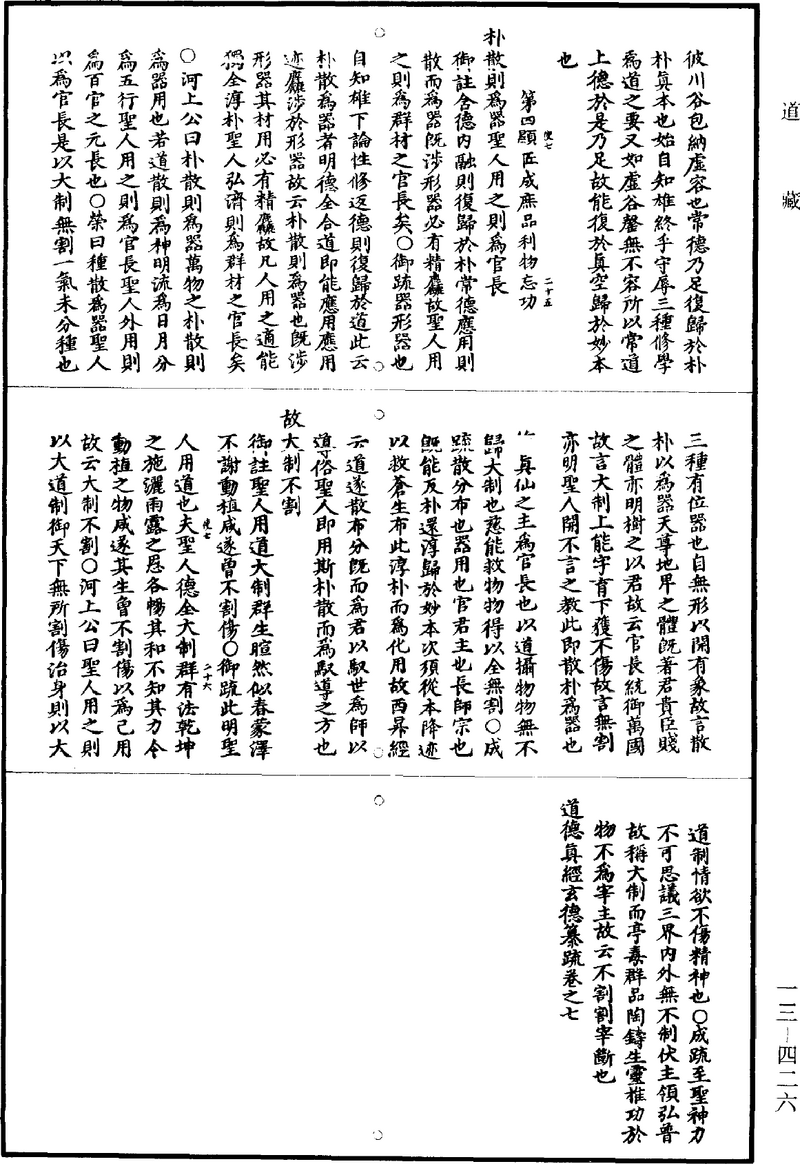 道藏
彼川谷包納虛容也常德乃足復歸於朴
朴眞本也始自知雄終乎守辱三種修學
爲道之要又如虛谷罄無不容所以常道
上德於是乃足故能復於眞空歸於妙本
也
第四顯匠成庶品利物忘功
使七
二十五
朴散則爲器聖人用之則爲官長
御註含德內融則復歸於朴常德應用則
散而爲器旣涉形器必有精麤故聖人用
之則爲群材之官長矣○御疏器形器也
自知雄下論性修返德則復歸於道此云
朴散爲器者明德全合道即能應用應用
迹麤涉於形器故云朴散則爲器也旣涉
形器其材用必有精麤故凡人用之適能
獨全淳朴聖人弘濟則爲群材之官長矣
○河上公曰朴散則爲器萬物之朴散則
爲器用也若道散則爲神明流爲日月分
爲五行聖人用之則爲官長聖人外用則
爲百官之元長也○榮曰種散爲器聖人
以爲官長是以大制無割一氣未分種也
三種有位器也自無形以開有象故言散
朴以爲器天尊地卑之體旣著君貴臣賤
之體亦明樹之以君故云官長統御萬國
故言大制上能字育下獲不傷故言無割
亦明聖人開不言之教此即散朴爲器也
眞仙之主爲官長也以道攝物物無不
歸大制也慈能救物物得以全無割○成
疏散分布也器用也官君主也長師宗也
旣能反朴還淳歸於妙本次須從本降迹
以救蒼生布此淳朴而爲化用故西昇經
云道遂散布分旣而爲君以馭世爲師以
導俗聖人即用斯朴散而爲馭導之方也
故大制不割
御註聖人用道大制群生暄然似春蒙澤
不謝動植咸遂曾不割傷○御疏此明聖
使七
二十六
人用道也夫聖人德全大制群有法乾坤
之施灑雨露之恩各暢其和不知其力令
動植之物咸遂其生曾不割傷以爲己用
故云大制不割○河上公曰聖人用之則
以大道制御天下無所割傷治身則以大
道制情欲不傷精神也○成疏至聖神力
不可思議三界內外無不制伏主領弘普
故稱大制而亭毒群品陶鑄生靈推功於
物不爲宰主故云不割割宰斷也
道德眞經玄德纂疏卷之七
一三－四二六